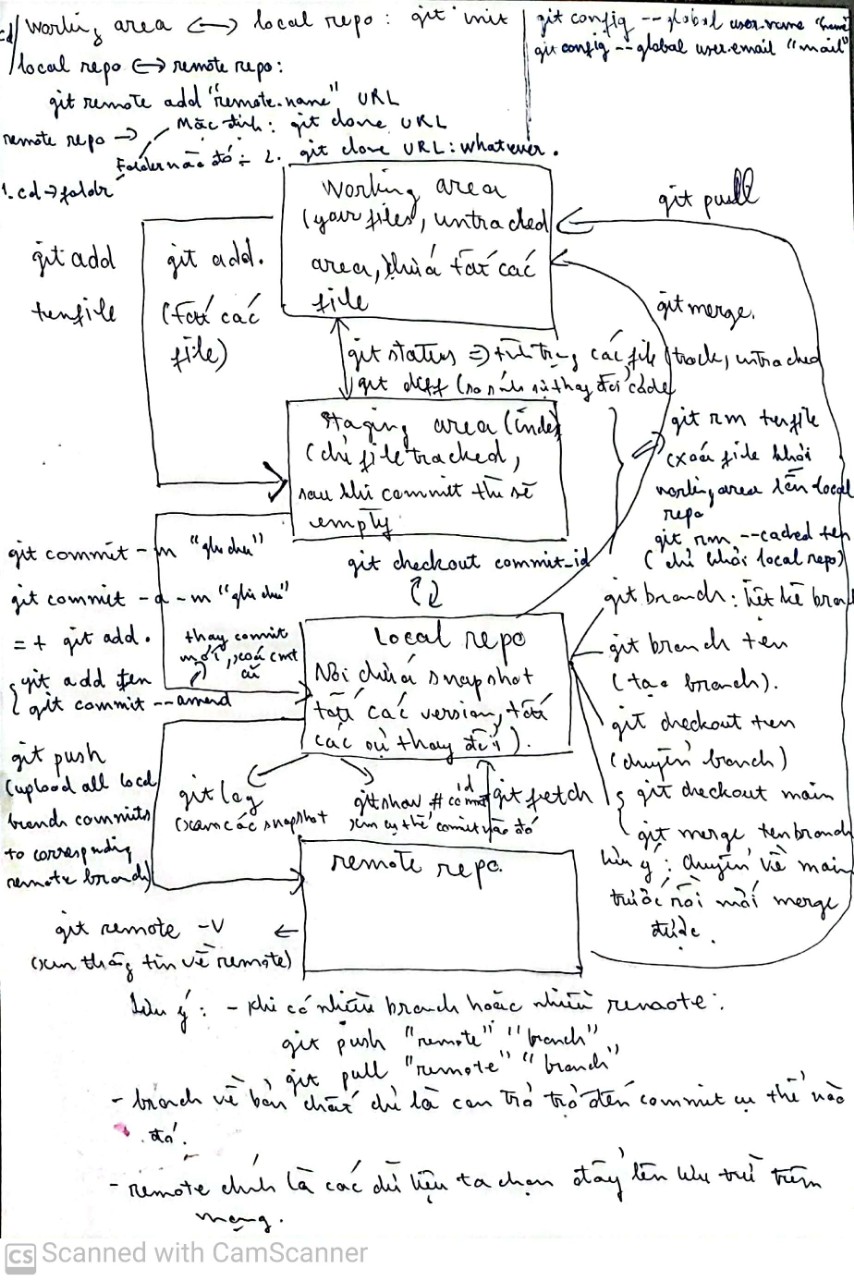 cd/ working area <-> local repo : git init
git config --global user.name "name"
git config --global user.email "mail"
local repo <-> remote repo :
git remote add "remote.name" URL
remote repo -> Mặc định : git clone URL
Folder nào đó : 2. git clone URL : whatever.
1. cd -> foldr
Working area
(your files, untracked
area, chứa tất các
file
git pull
git add
tenfile
git add.
(tất các
file)
git merge.
git status => tình trạng các file (track, untracked
git diff (so sánh sự thay đổi code
Staging area (index)
(chỉ file tracked,
sau khi commit thì sẽ
empty.
git rm tenfile
(xoá file khỏi
working area lẫn local
repo
git rm --cached ten
(chỉ khỏi local repo)
git checkout commit_id
git commit -m "ghi chú"
git commit -a -m "ghi chú"
= + git add.
git add ten
git commit --amend
thay commit
mới, xoá cmt
cũ
Local repo
Nơi chứa snapshot
tất các version, tất
các sự thay đổi).
git branch : liệt kê branch
git branch tên
(tạo branch).
git checkout ten
(chuyển branch)
git checkout main
git merge tenbranch
Lưu ý : chuyển về main
trước rồi mới merge
được.
git push
(upload all local
branch commits
to corresponding
remote branch)
git log
(xem các snapshot
git show # commit id
xem cụ thể commit nào đó
git fetch
remote repo.
git remote -v
(xem thông tin về remote)
Lưu ý : - Khi có nhiều branch hoặc nhiều remote :
git push "remote" "branch"
git pull "remote" "branch"
- branch về bản chất chỉ là con trỏ trỏ đến commit cụ thể nào
đó.
- remote chính là các dữ liệu ta chọn đẩy lên lưu trữ trên
mạng.
CS Scanned with CamScanner